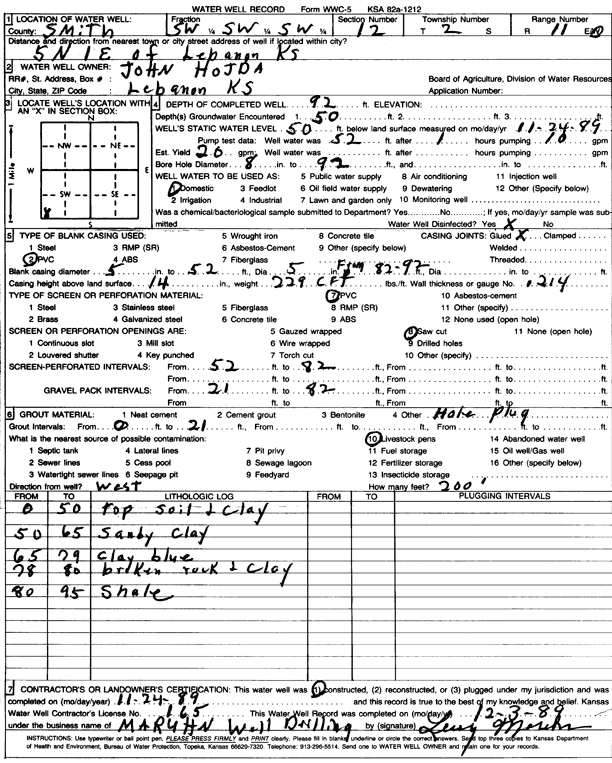 WATER WELL RECORD Form WWC-5 KSA 82a-1212
1 LOCATION OF WATER WELL: Fraction Section Number Township Number Range Number
County: Smith SW ¼ SW ¼ SW ¼ 12 T 2 S R 11 E/W
Distance and direction from nearest town or city street address of well if located within city?
5N 1E of Lebanon KS
2 WATER WELL OWNER: JOHN HOJDA
RR#, St. Address, Box # : Board of Agriculture, Division of Water Resources
City, State, ZIP Code : Lebanon KS Application Number:
3 LOCATE WELL'S LOCATION WITH AN "X" IN SECTION BOX:
N
NW NE
W E
SW SE
S
1 Mile
4 DEPTH OF COMPLETED WELL 92 ft. ELEVATION:
Depth(s) Groundwater Encountered 1. 50 ft. 2. ft. 3. ft.
WELL'S STATIC WATER LEVEL 50 ft. below land surface measured on mo/day/yr 11-24-89
Pump test data: Well water was 52 ft. after 1 hours pumping 10 gpm
Est. Yield 20 gpm; Well water was ft. after hours pumping gpm
Bore Hole Diameter 8 in. to 92 ft., and in. to ft.
WELL WATER TO BE USED AS: 5 Public water supply 8 Air conditioning 11 Injection well
1 Domestic 3 Feedlot 6 Oil field water supply 9 Dewatering 12 Other (Specify below)
2 Irrigation 4 Industrial 7 Lawn and garden only 10 Monitoring well
Was a chemical/bacteriological sample submitted to Department? Yes No ; If yes, mo/day/yr sample was submitted
Water Well Disinfected? Yes X No
5 TYPE OF BLANK CASING USED: 5 Wrought iron 8 Concrete tile CASING JOINTS: Glued X Clamped
1 Steel 3 RMP (SR) 6 Asbestos-Cement 9 Other (specify below) Welded
2 PVC 4 ABS 7 Fiberglass Threaded
Blank casing diameter 5 in. to 52 ft., Dia 5 in. From 82-92 ft., Dia
Casing height above land surface 14 in., weight 229 CFT lbs./ft. Wall thickness or gauge No. .214
TYPE OF SCREEN OR PERFORATION MATERIAL: 7 PVC 10 Asbestos-cement
1 Steel 3 Stainless steel 5 Fiberglass 8 RMP (SR) 11 Other (specify)
2 Brass 4 Galvanized steel 6 Concrete tile 9 ABS 12 None used (open hole)
SCREEN OR PERFORATION OPENINGS ARE: 5 Gauzed wrapped 8 Saw cut 11 None (open hole)
1 Continuous slot 3 Mill slot 6 Wire wrapped 9 Drilled holes
2 Louvered shutter 4 Key punched 7 Torch cut 10 Other (specify)
SCREEN-PERFORATED INTERVALS: From 52 ft. to 82 ft., From ft. to ft.
From ft. to ft., From ft. to ft.
GRAVEL PACK INTERVALS: From 21 ft. to 82 ft., From ft. to ft.
From ft. to ft., From ft. to ft.
6 GROUT MATERIAL: 1 Neat cement 2 Cement grout 3 Bentonite 4 Other Hole plug
Grout Intervals: From 0 ft. to 21 ft., From ft. to ft., From ft. to ft.
What is the nearest source of possible contamination: 10 Livestock pens 14 Abandoned water well
1 Septic tank 4 Lateral lines 7 Pit privy 11 Fuel storage 15 Oil well/Gas well
2 Sewer lines 5 Cess pool 8 Sewage lagoon 12 Fertilizer storage 16 Other (specify below)
3 Watertight sewer lines 6 Seepage pit 9 Feedyard 13 Insecticide storage
Direction from well? West How many feet? 200'
FROM TO LITHOLOGIC LOG FROM TO PLUGGING INTERVALS
0 50 top soil & clay
50 65 Sandy clay
65 79 clay blue
78 80 broken rock & clay
80 95 Shale
7 CONTRACTOR'S OR LANDOWNER'S CERTIFICATION: This water well was (1) constructed, (2) reconstructed, or (3) plugged under my jurisdiction and was
completed on (mo/day/year) 11-24-89 and this record is true to the best of my knowledge and belief. Kansas
Water Well Contractor's License No. 165 This Water Well Record was completed on (mo/day/yr) 12-3-89
under the business name of by (signature)
INSTRUCTIONS: Use typewriter or ball point pen. PLEASE PRESS FIRMLY and PRINT clearly. Please fill in blanks, underline or circle the correct answers. Send top three copies to Kansas Department
of Health and Environment, Bureau of Water Protection, Topeka, Kansas 66620-7320. Telephone: 913-296-5514. Send one to WATER WELL OWNER and retain one for your records.